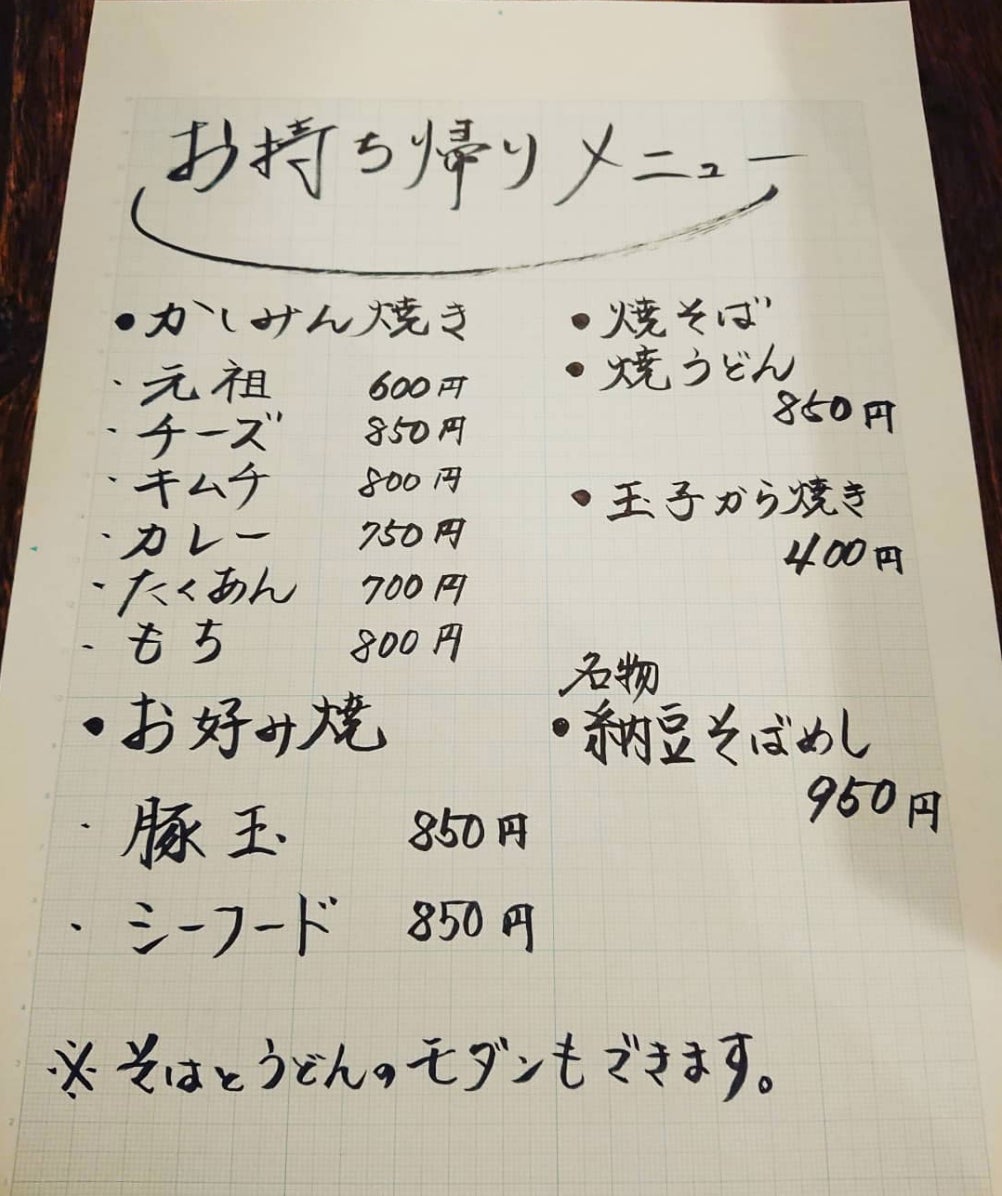 お持ち帰りメニュー
●かしみん焼き
・元祖 600円
・チーズ 850円
・キムチ 800円
・カレー 750円
・たくあん 700円
・もち 800円
●お好み焼
・豚玉 850円
・シーフード 850円
●焼そば
●焼うどん
850円
●玉子から焼き
400円
名物
●納豆そばめし
950円
※そばとうどんのモダンもできます。